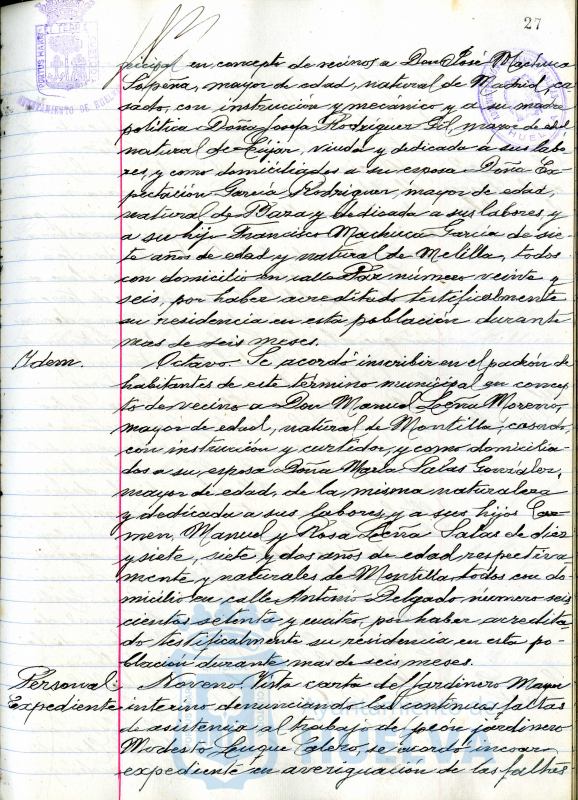 27
nicipal en concepto de vecinos a Don José Machuca
Lapeña, mayor de edad, natural de Madrid, ca-
sado, con instrucción y mecánico y a su madre
política Doña Josefa Rodríguez Gil, mayor de edad
natural de Cújar, viuda y dedicada a sus labo-
res, y como domiciliados a su esposa Doña Ex-
pectación García Rodríguez, mayor de edad,
natural de Baza y dedicada a sus labores, y
a su hijo Francisco Machuca García de sie-
te años de edad y natural de Melilla, todos
con domicilio en calle Paz número veinte y
seis, por haber acreditado testificalmente
su residencia en esta población durante
mas de seis meses.
Idem. Octavo. Se acordó inscribir en el padrón de
habitantes de este término municipal en concep-
to de vecino a Don Manuel Leña Moreno,
mayor de edad, natural de Montilla, casado,
con instrucción y curtidor, y como domicilia-
dos a su esposa Doña María Salas González,
mayor de edad, de la misma naturaleza
y dedicada a sus labores, y a sus hijos Car-
men, Manuel y Rosa Leña Salas de diez
y siete, siete y dos años de edad, respectiva-
mente, y naturales de Montilla, todos con do-
micilio en calle Antonio Delgado, número seis
cientos setenta y cuatro, por haber acredita-
do testificalmente su residencia en esta po-
blación durante mas de seis meses.
Personal: Noveno. Vista carta del Jardinero Mayor
Expediente interino denunciando las continuas faltas
de asistencia al trabajo del peón jardinero
Modesto Luque Calero, se acordó incoar
expediente en averiguación de las faltas
AYUNTAMIENTO DE HUELVA
Ayuntamiento de
HUELVA